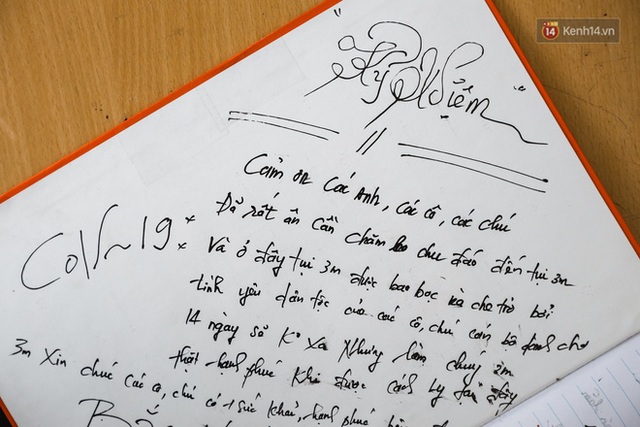 14 Kenh14.vn
"Kỷ Niệm"
Cảm ơn Các Anh, các cô, các chú
Covi~19
Đã rất ân cần chăm lo chu đáo đến tụi 3m
Và ở đây tụi 3m được bao bọc và che trở bởi
tình yêu dân tộc của các cô, chú cán bộ dành cho
14 ngày số K° Xa Nhưng làm chúng 3m
thật hạnh phúc Khi được cách Ly tại đây
3m Xin chúc Các cô, chú có 1 sức Khoẻ, hạnh phúc